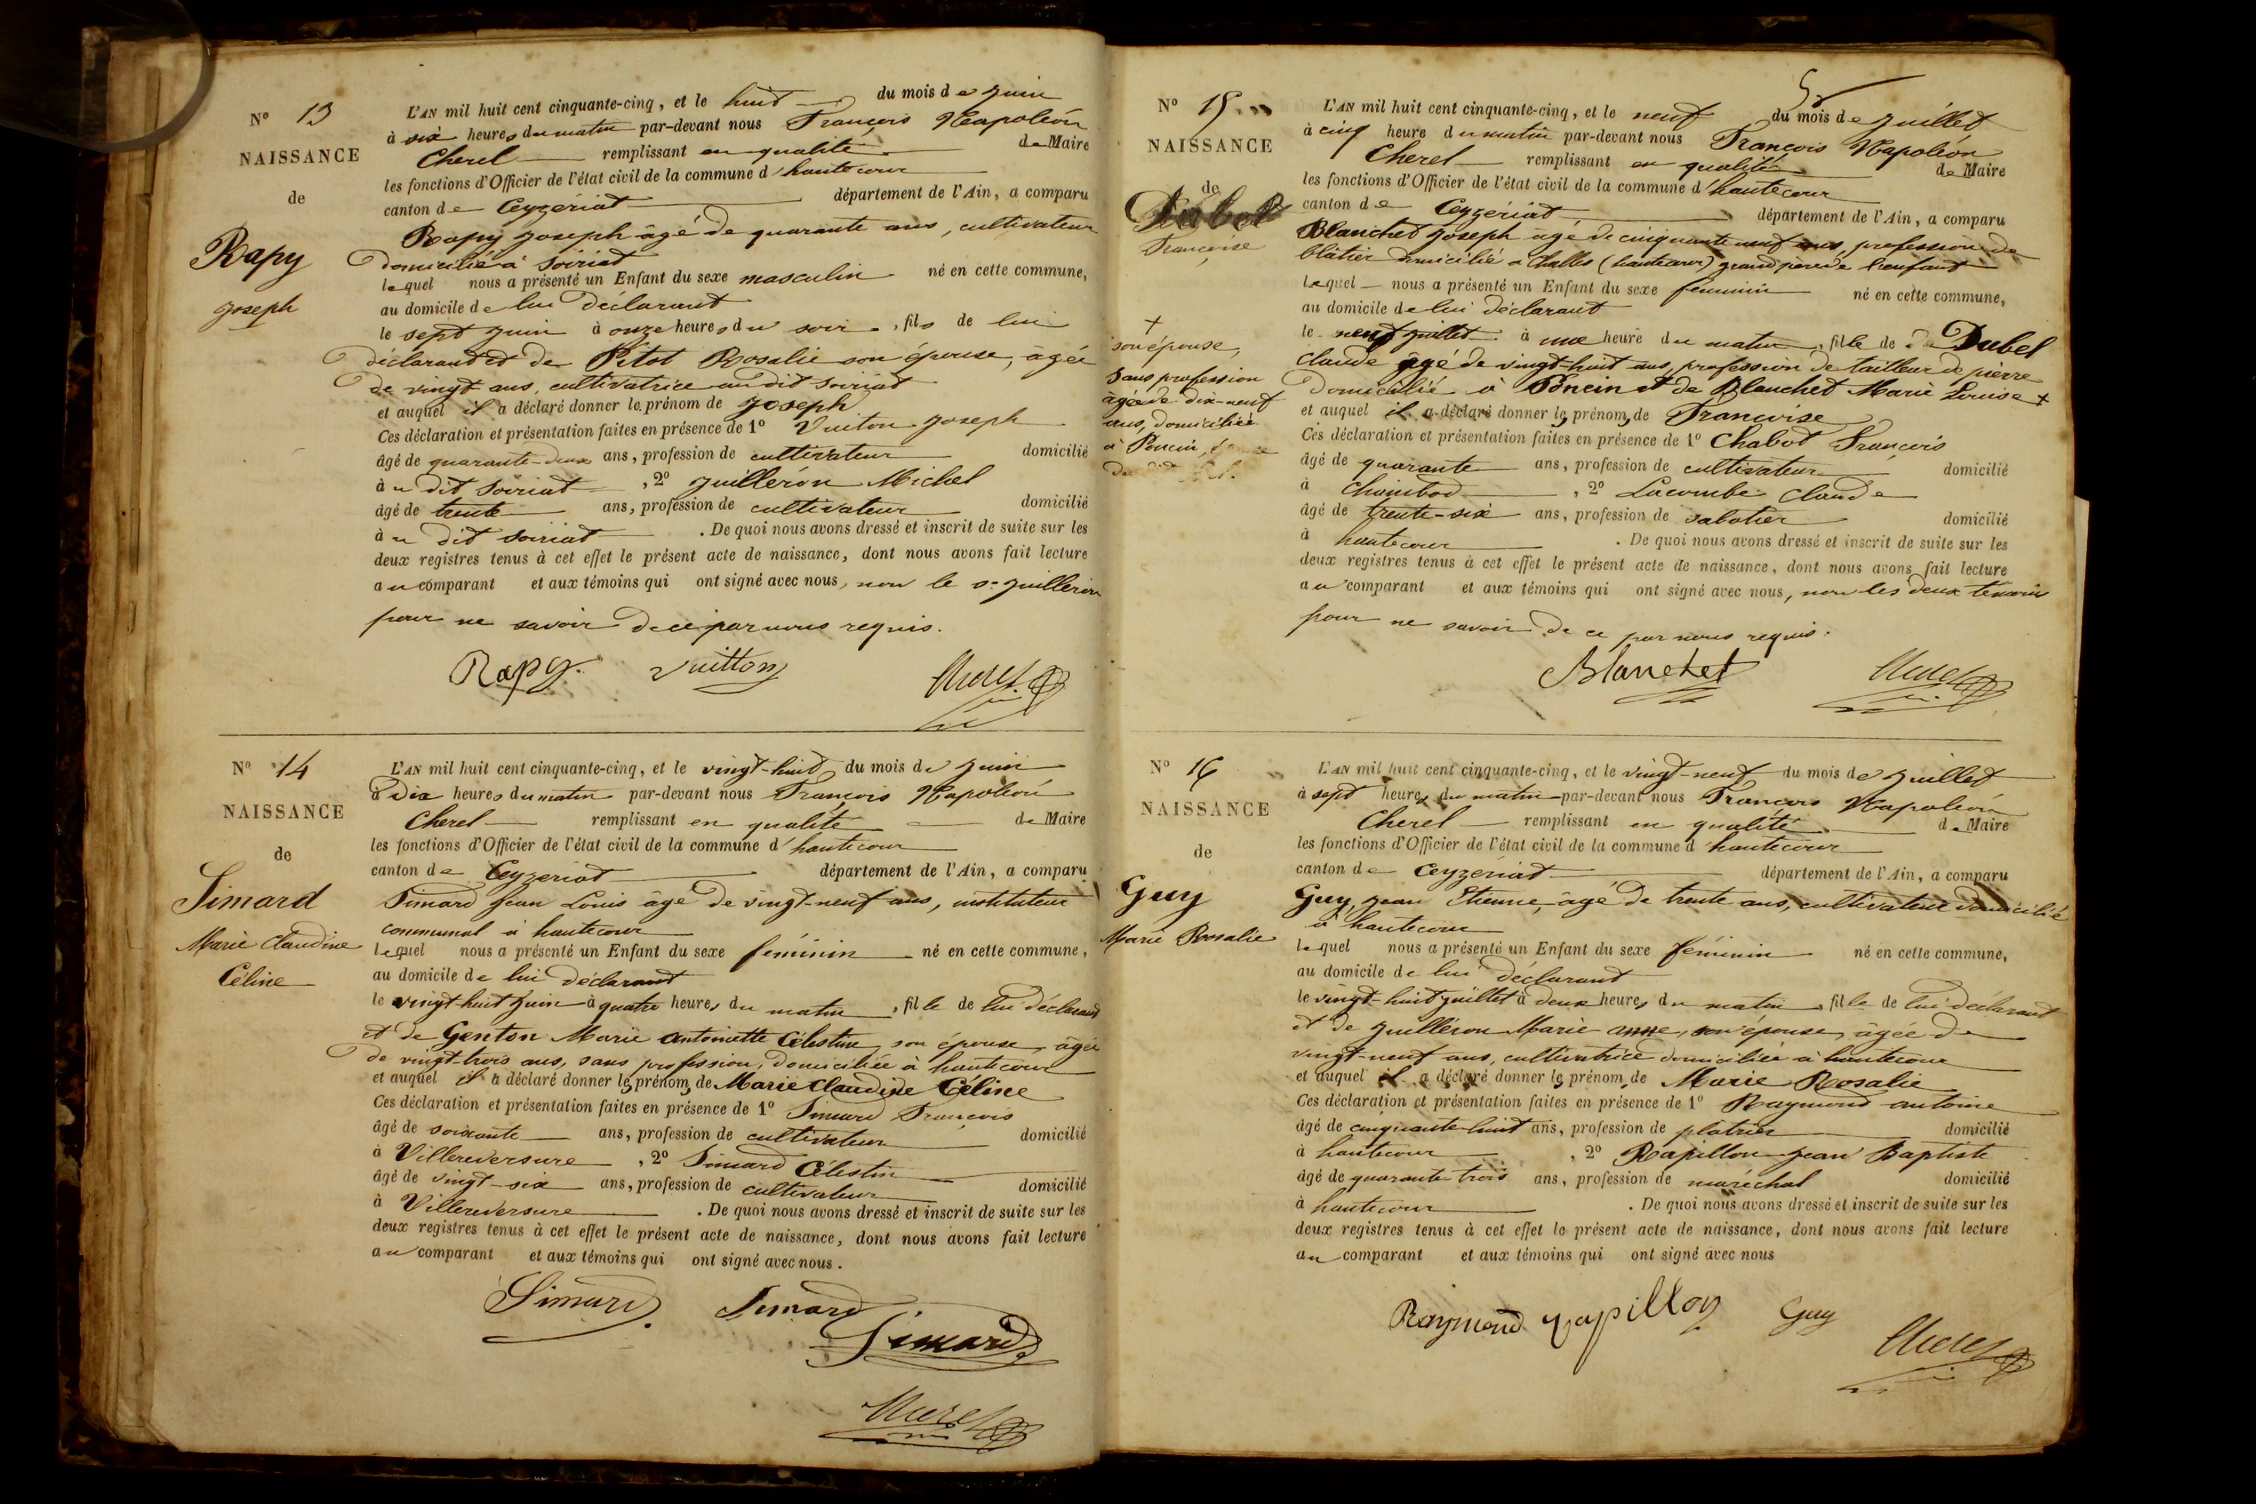 N° 13
NAISSANCE
de
Rapy
Joseph
L'AN mil huit cent cinquante-cinq, et le huit du mois de juin
à six heures du matin par-devant nous François Napoléon
Cherel remplissant en qualité de Maire
les fonctions d'Officier de l'état civil de la commune d'hautecour
canton de Ceyzeriat département de l'Ain, a comparu
Rapy Joseph âgé de quarante ans, cultivateur
domicilié à Soiriat
lequel nous a présenté un Enfant du sexe masculin né en cette commune,
au domicile de lui déclarant
le sept juin à onze heures du soir, fils de lui
déclarant et de Pitot Rosalie son épouse, âgée
de vingt ans, cultivatrice au dit Soiriat
et auquel il a déclaré donner le prénom de Joseph
Ces déclaration et présentation faites en présence de 1° Vuiton Joseph
âgé de quarante-deux ans, profession de cultivateur domicilié
à u dit Soiriat, 2° Juilléron Michel
âgé de trente ans, profession de cultivateur domicilié
à u dit Soiriat. De quoi nous avons dressé et inscrit de suite sur les
deux registres tenus à cet effet le présent acte de naissance, dont nous avons fait lecture
au comparant et aux témoins qui ont signé avec nous, non le s. Juilleron
pour ne savoir de ce par nous requis.
Rapy. Vuitton Cherel
N° 14
NAISSANCE
de
Simard
Marie Claudine
Céline
L'AN mil huit cent cinquante-cinq, et le vingt-huit du mois de juin
à dix heures du matin par-devant nous François Napoléon
Cherel remplissant en qualité de Maire
les fonctions d'Officier de l'état civil de la commune d'hautecour
canton de Ceyzeriat département de l'Ain, a comparu
Simard Jean Louis âgé de vingt-neuf ans, instituteur
communal à hautecour
lequel nous a présenté un Enfant du sexe féminin né en cette commune,
au domicile de lui déclarant
le vingt-huit juin à quatre heures du matin, fille de lui déclarant
et de Genton Marie Antoinette Célestine, son épouse, âgée
de vingt-trois ans, sans profession, domiciliée à hautecour
et auquel il a déclaré donner les prénoms de Marie Claudine Céline
Ces déclaration et présentation faites en présence de 1° Simard François
âgé de soixante ans, profession de cultivateur domicilié
à Villereversure, 2° Simard Célestin
âgé de vingt-six ans, profession de cultivateur domicilié
à Villereversure. De quoi nous avons dressé et inscrit de suite sur les
deux registres tenus à cet effet le présent acte de naissance, dont nous avons fait lecture
au comparant et aux témoins qui ont signé avec nous.
Simard Simard
Simard
Cherel
N° 15
NAISSANCE
de
Dubel
Françoise
L'AN mil huit cent cinquante-cinq, et le neuf du mois de juillet
à cinq heure du matin par-devant nous François Napoléon
Cherel remplissant en qualité de Maire
les fonctions d'Officier de l'état civil de la commune d'hautecour
canton de Ceyzériat département de l'Ain, a comparu
Blanchet Joseph âgé de cinquante neuf ans, profession de
blâtier domicilié à Challes (hautecour) grand père de l'enfant
lequel nous a présenté un Enfant du sexe féminin né en cette commune,
au domicile de lui déclarant
le neuf juillet à une heure du matin, fille de Dubel
Claude âgé de vingt-huit ans, profession de tailleur de pierre
domicilié à Poncin et de Blanchet Marie Louise +
+
son épouse,
sans profession
âgée de dix-neuf
ans, domiciliée
à Poncin,
et auquel il a déclaré donner les prénoms de Françoise
Ces déclaration et présentation faites en présence de 1° Chabot François
âgé de quarante ans, profession de cultivateur domicilié
à Chambod, 2° Lacombe Claude
âgé de trente-six ans, profession de sabotier domicilié
à hautecour. De quoi nous avons dressé et inscrit de suite sur les
deux registres tenus à cet effet le présent acte de naissance, dont nous avons fait lecture
au comparant et aux témoins qui ont signé avec nous, non les deux témoins
pour ne savoir de ce par nous requis.
Blanchet Cherel
N° 16
NAISSANCE
de
Guy
Marie Rosalie
L'AN mil huit cent cinquante-cinq, et le vingt-neuf du mois de juillet
à sept heures du matin par-devant nous François Napoléon
Cherel remplissant en qualité de Maire
les fonctions d'Officier de l'état civil de la commune d'hautecour
canton de Ceyzériat département de l'Ain, a comparu
Guy, Jean Etienne, âgé de trente ans, cultivateur domicilié
à hautecour
lequel nous a présenté un Enfant du sexe féminin né en cette commune,
au domicile de lui déclarant
le vingt-huit juillet à deux heures du matin, fille de lui déclarant
et de Juilléron Marie Anne, son épouse, âgée de
vingt-neuf ans, cultivatrice domiciliée à hautecour
et auquel il a déclaré donner les prénoms de Marie Rosalie
Ces déclaration et présentation faites en présence de 1° Raymond Antoine
âgé de cinquante-huit ans, profession de platrier domicilié
à hautecour, 2° Rapillon Jean Baptiste
âgé de quarante trois ans, profession de maréchal domicilié
à hautecour. De quoi nous avons dressé et inscrit de suite sur les
deux registres tenus à cet effet le présent acte de naissance, dont nous avons fait lecture
au comparant et aux témoins qui ont signé avec nous
Raymond rapillon Guy
Cherel